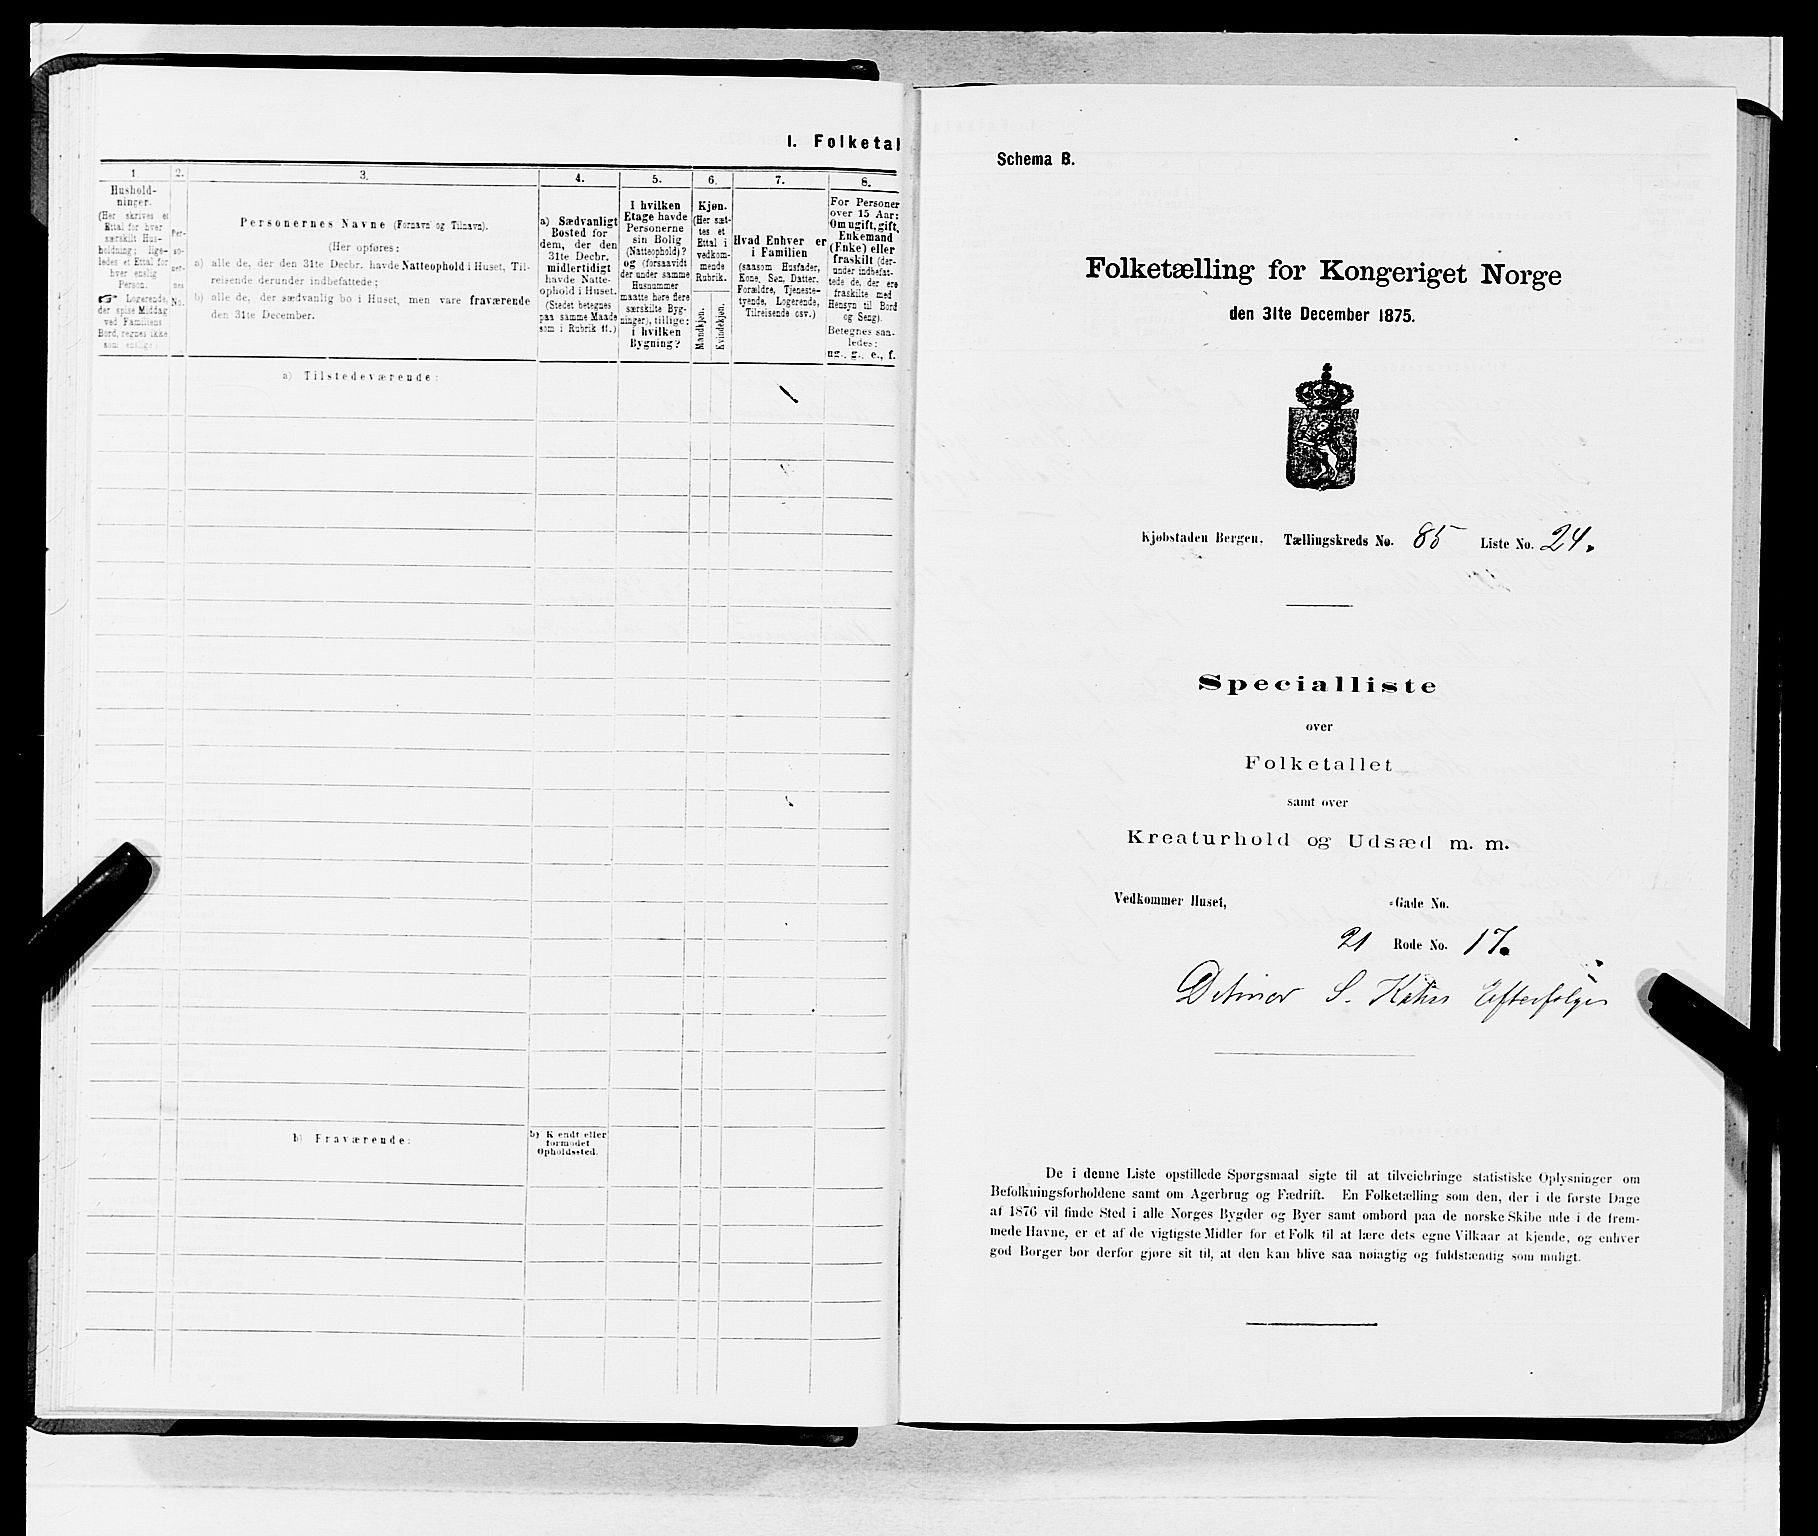 I. Folketal
1
2.
3.
4.
5.
6.
7.
8.
Hushold-
ninger.
(Her skrives et
Ettal for hver
særskilt Hus-
holdning; lige-
ledes et Ettal for
hver enslig
Person.
☞ Logerende,
der spise Middag
ved Familiens
Bord, regnes ikke
som enslige.)
Per-
so-
ner-
nes
No.
Personernes Navne (Fornavn og Tilnavn).
(Her opføres:
a) alle de, der den 31te Decbr. havde Natteophold i Huset, Til-
reisende derunder indbefattede;
b) alle de, der sædvanlig bo i Huset, men vare fraværende
den 31te December.
a) Sædvanligt
Bosted for
dem, der den
31te Decbr.
midlertidigt
havde Natte-
ophold i Huset.
(Stedet betegnes
paa samme Maade
som i Rubrik 11.)
I hvilken
Etage havde
Personerne
sin Bolig
(Natteophold)?
og (forsaavidt
der under samme
Husnummer
maatte høre flere
særskilte Byg-
ninger), tillige:
i hvilken
Bygning?
Kjøn.
(Her sæt-
tes et
Ettal i
vedkom-
mende
Rubrik.
Mandkjøn.
Kvindekjøn.
Hvad Enhver er
i Familien
(saasom Husfader,
Kone, Søn, Datter,
Forældre, Tjeneste-
tyende, Logerende,
Tilreisende osv.)
For Personer
over 15 Aar:
Om ugift, gift,
Enkemand
(Enke) eller
fraskilt (der-
under indbefat-
tede de, der ere
fraskilte med
Hensyn til Bord
og Seng).
Betegnes saa-
ledes:
ug., g., e., f.
a) Tilstedeværende:
b) Fraværende:
b) Kjendt eller
formodet
Opholdssted.
Schema B.
Folketælling for Kongeriget Norge
den 31te December 1875.
Kjøbstaden Bergen. Tællingskreds No. 85 Liste No. 24.
Specialliste
over
Folketallet
samt over
Kreaturhold og Udsæd m. m.
Vedkommer Huset, -Gade No.
21 Rode No. 17.
Detmar S. Kahrs Efterfølger
De i denne Liste opstillede Spørgsmaal sigte til at tilveiebringe statistiske Oplysninger om
Befolkningsforholdene samt om Agerbrug og Fædrift. En Folketælling som den, der i de første Dage
af 1876 vil finde Sted i alle Norges Bygder og Byer samt ombord paa de norske Skibe ude i de frem-
mede Havne, er et af de vigtigste Midler for et Folk til at lære dets egne Vilkaar at kjende, og enhver
god Borger bør derfor gjøre sit til, at den kan blive saa nøiagtig og fuldstændig som muligt.